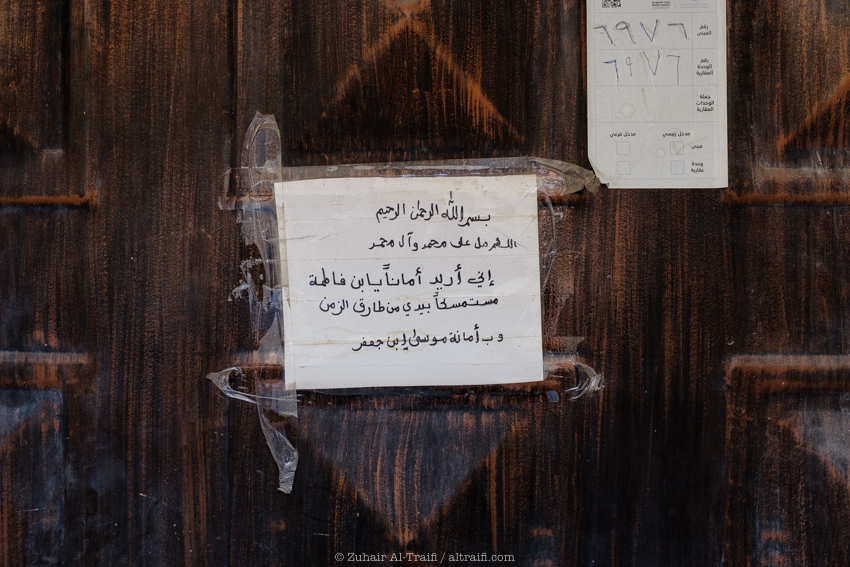 رقم
المبنى
٦٩٧٦
رقم
الوحدة
العقارية
٦٩٧٦
جملة
الوحدات
العقارية
مدخل رئيسي
مدخل فرعي
مبنى
وحدة
عقارية
بسم الله الرحمن الرحيم
اللهم صل على محمد وآل محمد
إني أريد أماناً يا ابن فاطمة
مستمسكاً بيدي من طارق الزمن
وب أمانة موسى إبن جعفر
© Zuhair Al-Traifi / altraifi.com